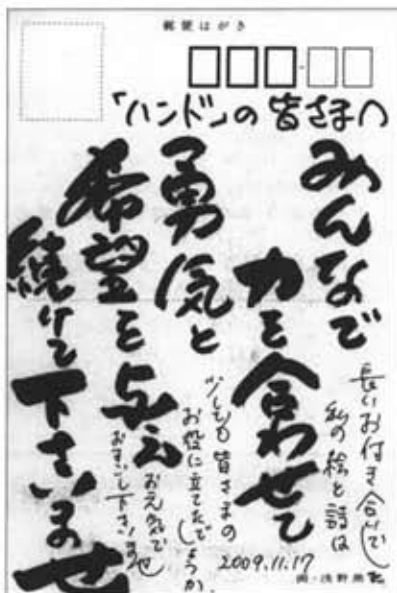 郵便はがき
「ハンド」の皆さまへ
みんなで
力を合わせて
勇気と
希望を与え
続けて下さいませ
長いお付き合いでし
私の絵と詩は
少しも皆さまの
お役に立てたで
しょうか
お元気で
おすごし下さいませ
2009.11.17
画・浅野